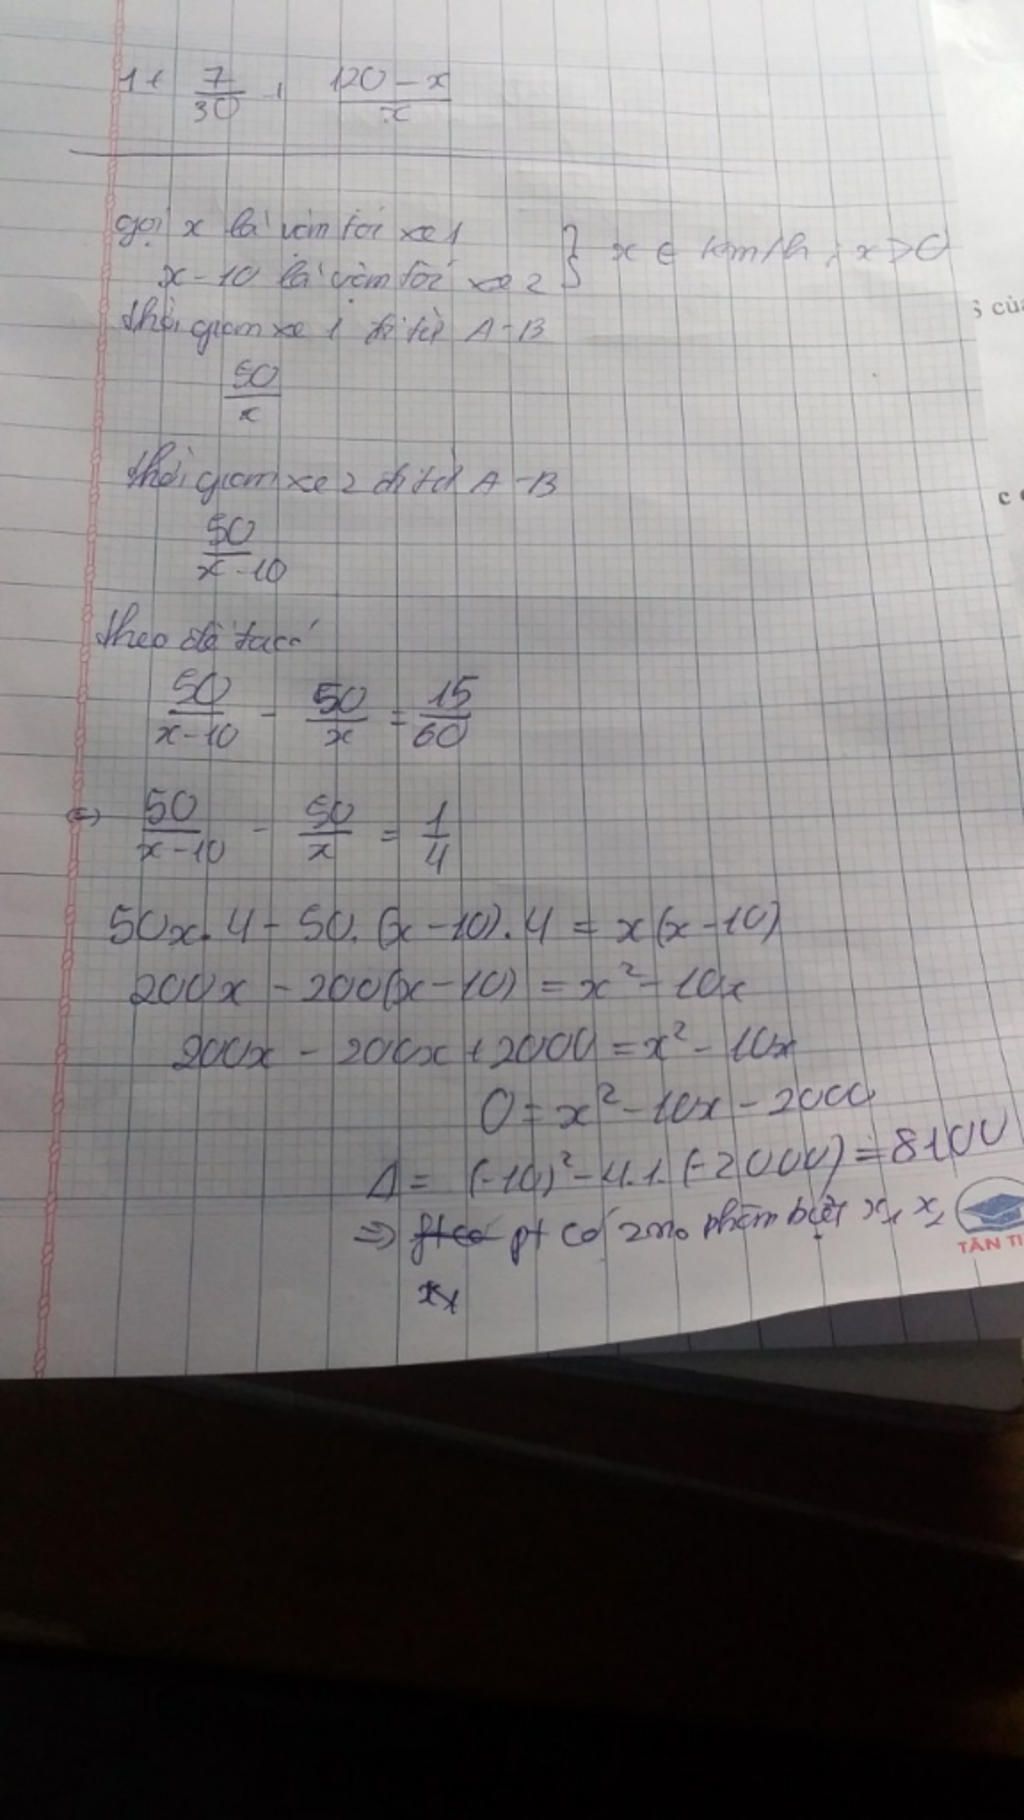 1+ 7/30 + (120-x)/x
gọi x là vận tốc xe 1 } x ∈ km/h ; x > 0
x-10 là vận tốc xe 2
thời gian xe 1 đi từ A-B
50/x
thời gian xe 2 đi từ A-B
50/(x-10)
theo đề ta có
50/(x-10) - 50/x = 15/60
<=> 50/(x-10) - 50/x = 1/4
50x.4 - 50.(x-10).4 = x(x-10)
200x - 200(x-10) = x² - 10x
200x - 200x + 2000 = x² - 10x
0 = x² - 10x - 2000
Δ = (-10)² - 4.1.(-2000) = 8100
=> pt có 2 no phân biệt x₁ x₂
x₁
TÂN TI
ố của
c